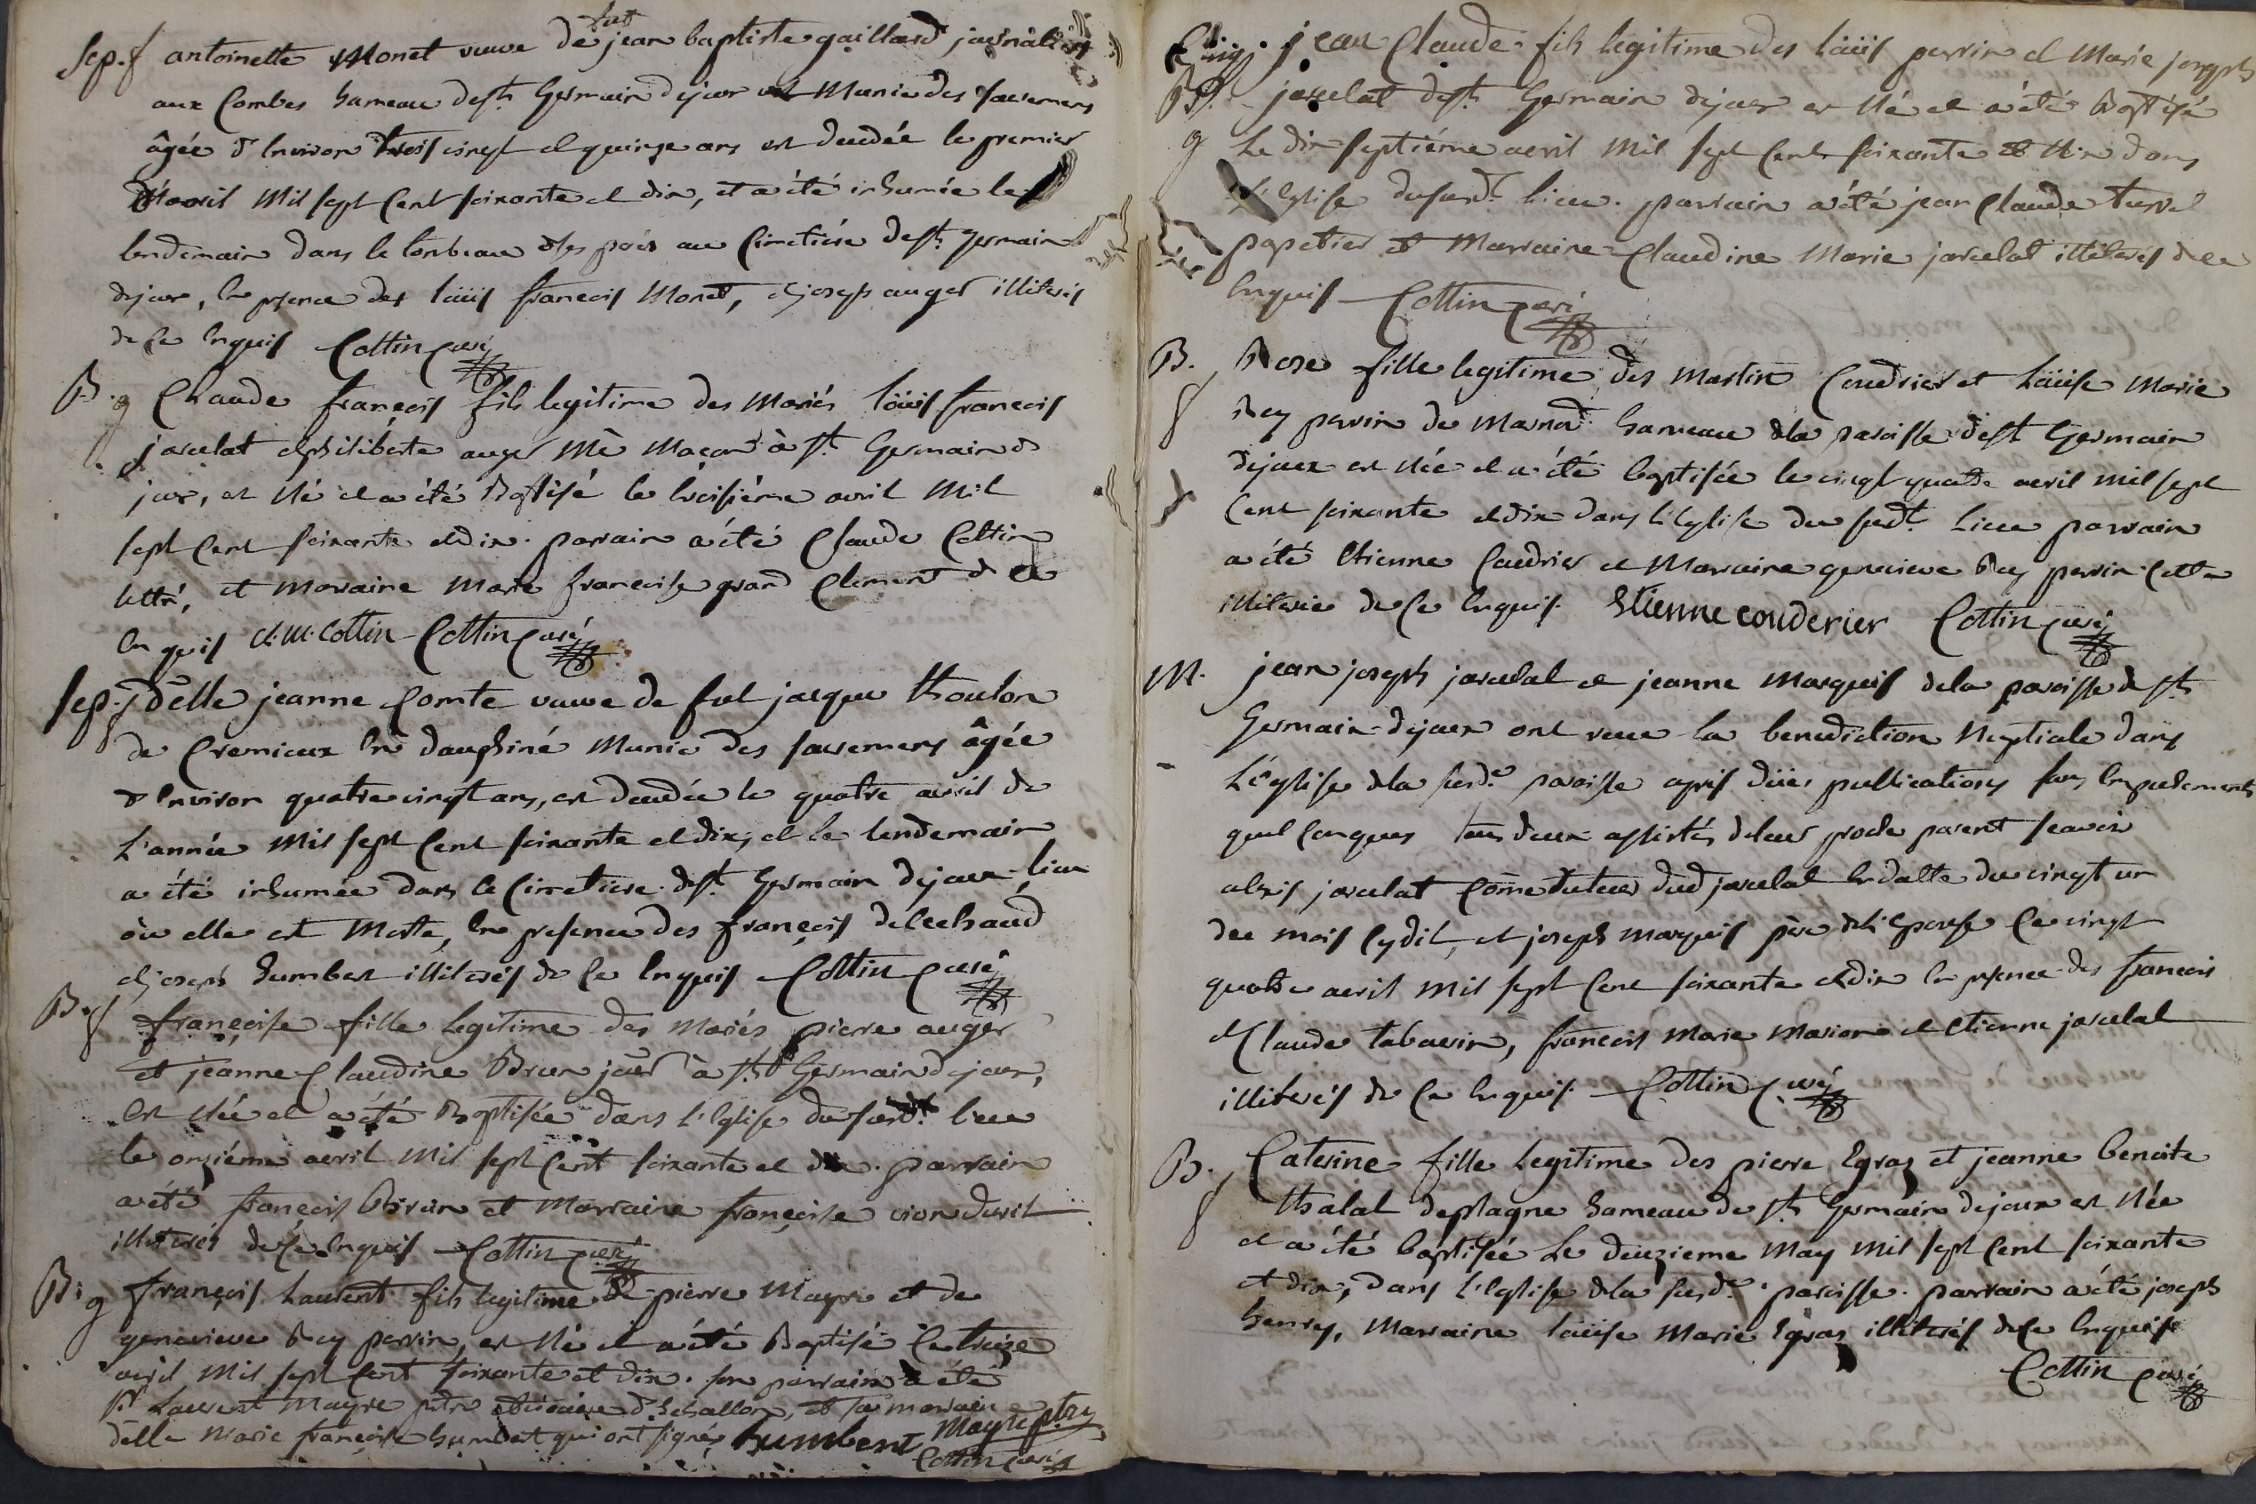 Sep. f antoinette Monet veuve de fut jean baptiste gaillard journalier
aux Combes hameau de st Germain dejoux est Munie des sacremens
âgée d'environ trois vingt et quinze ans est decedée le premier
d'avril Mil sept cent soixante et dix, et a été inhumée le
lendemain dans le tombeau des siens au Cimetiére de st germain
dejoux, en presence des loüis francois Monet, et joseph auger illiterés
de ce Enquis Cottin curé
B. g Claude françois fils legitime des mariés loüis francois
jaselat et philiberte auger Mè Maçon à st Germain de
joux, est Né et a été Baptisé le troisiéme avril Mil
sept cent soixante et dix. parrain a été Claude Cottin
lettré, et marraine marie francoise grand Clement de ce
Enquis cl. M. Cottin Cottin curé
Sep. f delle jeanne Comte veuve de fut jacque thoulon
de Cremieux En dauphiné Munie des sacremens âgée
d'environ quatre vingt ans, est decedée le quatre avril de
L'année Mil sept cent soixante et dix, et le lendemain
a été inhumée dans le Cimetiere de st Germain dejoux lieu
ou elle est Morte, En presence des françois delechaud
et joseph humbert illiterés de ce Enquis Cottin curé
B. f françoise fille legitime des mariés pierre auger
et jeanne Claudine Brun jour à st Germain dejoux,
Est Née et a été Baptisée dans l'Eglise du susd.t lieu
le onziéme avril Mil sept cent soixante et dix. parrain
a été françois Brun et Marraine françoise
illiterés de ce Enquis Cottin curé
B. g françois Laurent fils legitime de pierre Mayre et de
genevieve Rey perrin, est Né et a été Baptisé le treize
avril Mil sept cent soixante et dix. son parrain a été
Laurent Mayre d'Echallon, et sa marraine
delle Marie françoise humbert qui ont signés humbert Mayre ptre
Cottin curé
jean Claude fils legitime des loüis perrin et Marie joseph
B. g jaselat de st Germain dejoux est Né et a été Baptisé
Le dix septiéme avril Mil sept cent soixante et dix dans
L'Eglise du susd.t lieu. parrain a été jean Claude turrel
papetier et Marraine Claudine Marie jaselat illiterés de ce
Enquis Cottin curé
B. f Rose fille legitime des martin Coudrier et Loüise Marie
Rey perrin de Marnod hameau de la paroisse de st Germain
dejoux est Née et a été baptisée le vingt quatre avril mil sept
cent soixante et dix dans l'Eglise du susd.t lieu parrain
a été Etienne Coudrier et Marraine genevieve Rey perrin cette
illiterée de ce Enquis. Etienne couderier Cottin curé
M. jean joseph jaselat et jeanne Marquis de la paroisse de st
Germain dejoux ont receu la benediction Nuptiale dans
L'église de la susd.e paroisse après düës publications sans Empechements
quelconques tous deux assistés de leur proche parent scavoir
alexis jaselat Côme tuteur dud jaselat En datte du vingt un
du mois Cydit, et joseph marquis père de l'Epouse Ce vingt
quatre avril mil sept cent soixante et dix En presence des francois
et Claude tabarin, francois Marie Marion et etienne jaselat
illiterés de ce Enquis. Cottin curé
B. f Caterine fille legitime des pierre Egraz et jeanne benoite
thalat de plagne hameau de st Germain dejoux est Née
et a été baptisée Le deuzieme May mil sept cent soixante
et dix, dans l'Eglise de la susd.e paroisse. parrain a été joseph
henry, Marraine loüise Marie Egraz illiterés de ce Enquis
Cottin curé